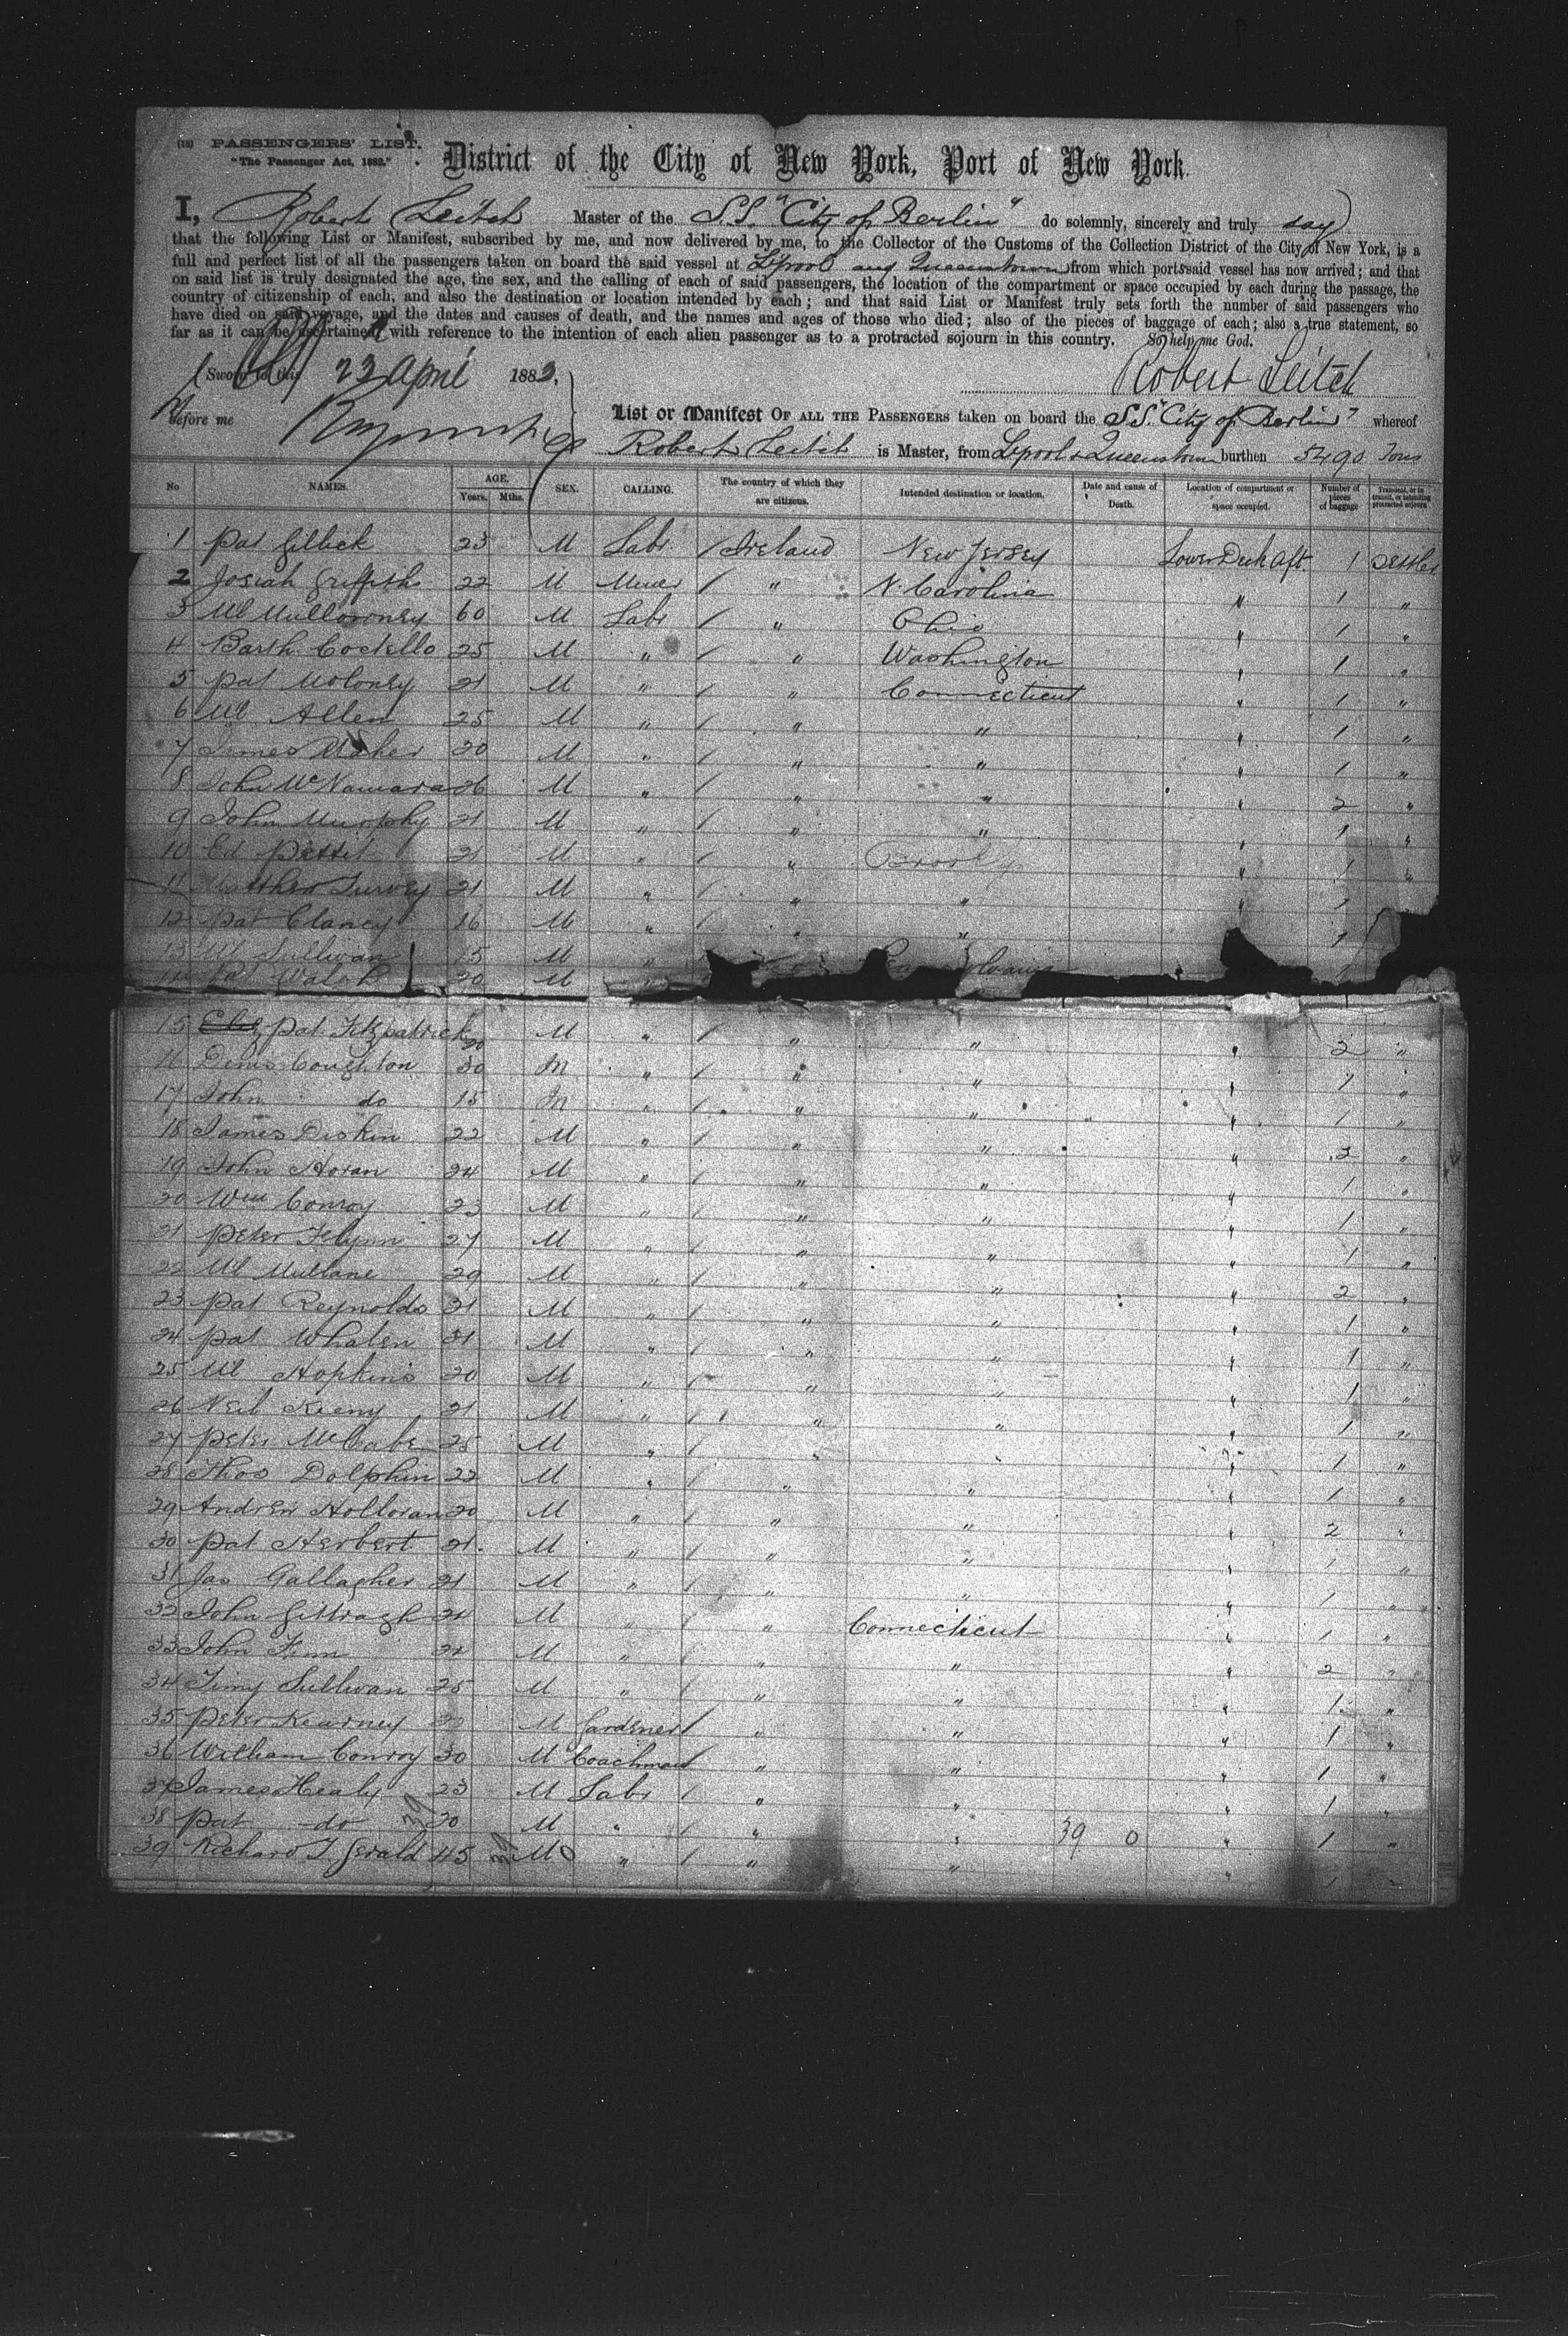 (18) PASSENGERS' LIST.
"The Passenger Act, 1882."
District of the City of New York, Port of New York.
I, Robert Leitch Master of the S.S. "City of Berlin" do solemnly, sincerely and truly say
that the following List or Manifest, subscribed by me, and now delivered by me, to the Collector of the Customs of the Collection District of the City of New York, is a
full and perfect list of all the passengers taken on board the said vessel at L'pool and Queenstown from which ports said vessel has now arrived; and that
on said list is truly designated the age, the sex, and the calling of each of said passengers, the location of the compartment or space occupied by each during the passage, the
country of citizenship of each, and also the destination or location intended by each; and that said List or Manifest truly sets forth the number of said passengers who
have died on said voyage, and the dates and causes of death, and the names and ages of those who died; also of the pieces of baggage of each; also a true statement, so
far as it can be ascertained with reference to the intention of each alien passenger as to a protracted sojourn in this country. So help me God.
Sworn to this 23 April 1883. Robert Leitch
Before me
List or Manifest OF ALL THE PASSENGERS taken on board the S.S. "City of Berlin" whereof
Robert Leitch is Master, from L'pool & Queenstown burthen 5490 Tons
No NAMES. AGE. Years. Mths. SEX. CALLING. The country of which they are citizens. Intended destination or location. Date and cause of Death. Location of compartment or space occupied. Number of pieces of baggage Transient, or in transit, or intending protracted sojourn
1 Pat Gillick 23 M Labr / Ireland New Jersey Lower Deck Aft. 1 Settler
2 Josiah Griffith 22 M Miner / " N. Carolina " 1 "
3 Ml Mullooney 60 M Labr / " Ohio " 1 "
4 Barth. Costello 25 M " / " Washington " 1 "
5 Pat Moloney 21 M " / " Connecticut " 1 "
6 Ml Allen 25 M " / " " " 1 "
7 James Maher 20 M " / " " " 1 "
8 John McNamara 26 M " / " " " 2 "
9 John Murphy 21 M " / " " " 1 "
10 Ed Pettit 21 M " / " " 1 "
11 Matthew Survey 21 M " / " " " 1
12 Pat Clancy 16 M " / " " " 1
13 Ml Sullivan 15 M " Pennsylvania
14 Walsh 20 M "
15 Pat Fitzpatrick 20 M " / " " " 2 "
16 Denis Coughlon 30 M " / " " " 1 "
17 John do 15 M " / " " " 1 "
18 James Diskin 22 M " / " " " 2 "
19 John Horan 24 M " / " " " 1 "
20 Wm Conroy 23 M " / " " " 1 "
21 Peter Flynn 27 M " / " " " 1 "
22 Ml Mullane 29 M " / " " " 2 "
23 Pat Reynolds 21 M " / " " " 1 "
24 Pat Whalen 21 M " / " " " 1 "
25 Ml Hopkins 20 M " / " " " 1 "
26 Neil Keeny 21 M " / " " " 1 "
27 Peter McCabe 25 M " / " " " 1 "
28 Thos Dolphin 22 M " / " " " 1 "
29 Andrew Holloran 20 M " / " " " 2 "
30 Pat Herbert 21 M " / " " 1 "
31 Jas Gallagher 21 M " / " " " 1 "
32 John 21 M " / " Connecticut " 1 "
33 John Finn 21 M " / " " " 2 "
34 Timy Sullivan 25 M " / " " " 1 "
35 Peter Kearney M Gardener / " " " 1 "
36 William Conroy 30 M Coachman / " " " 1 "
37 James Healy 23 M Labr / " " " 1 "
38 Pat do 20 M " / " " 39 0 " 1 "
39 Richard T. Gerald 45 M " / " " " 1 "